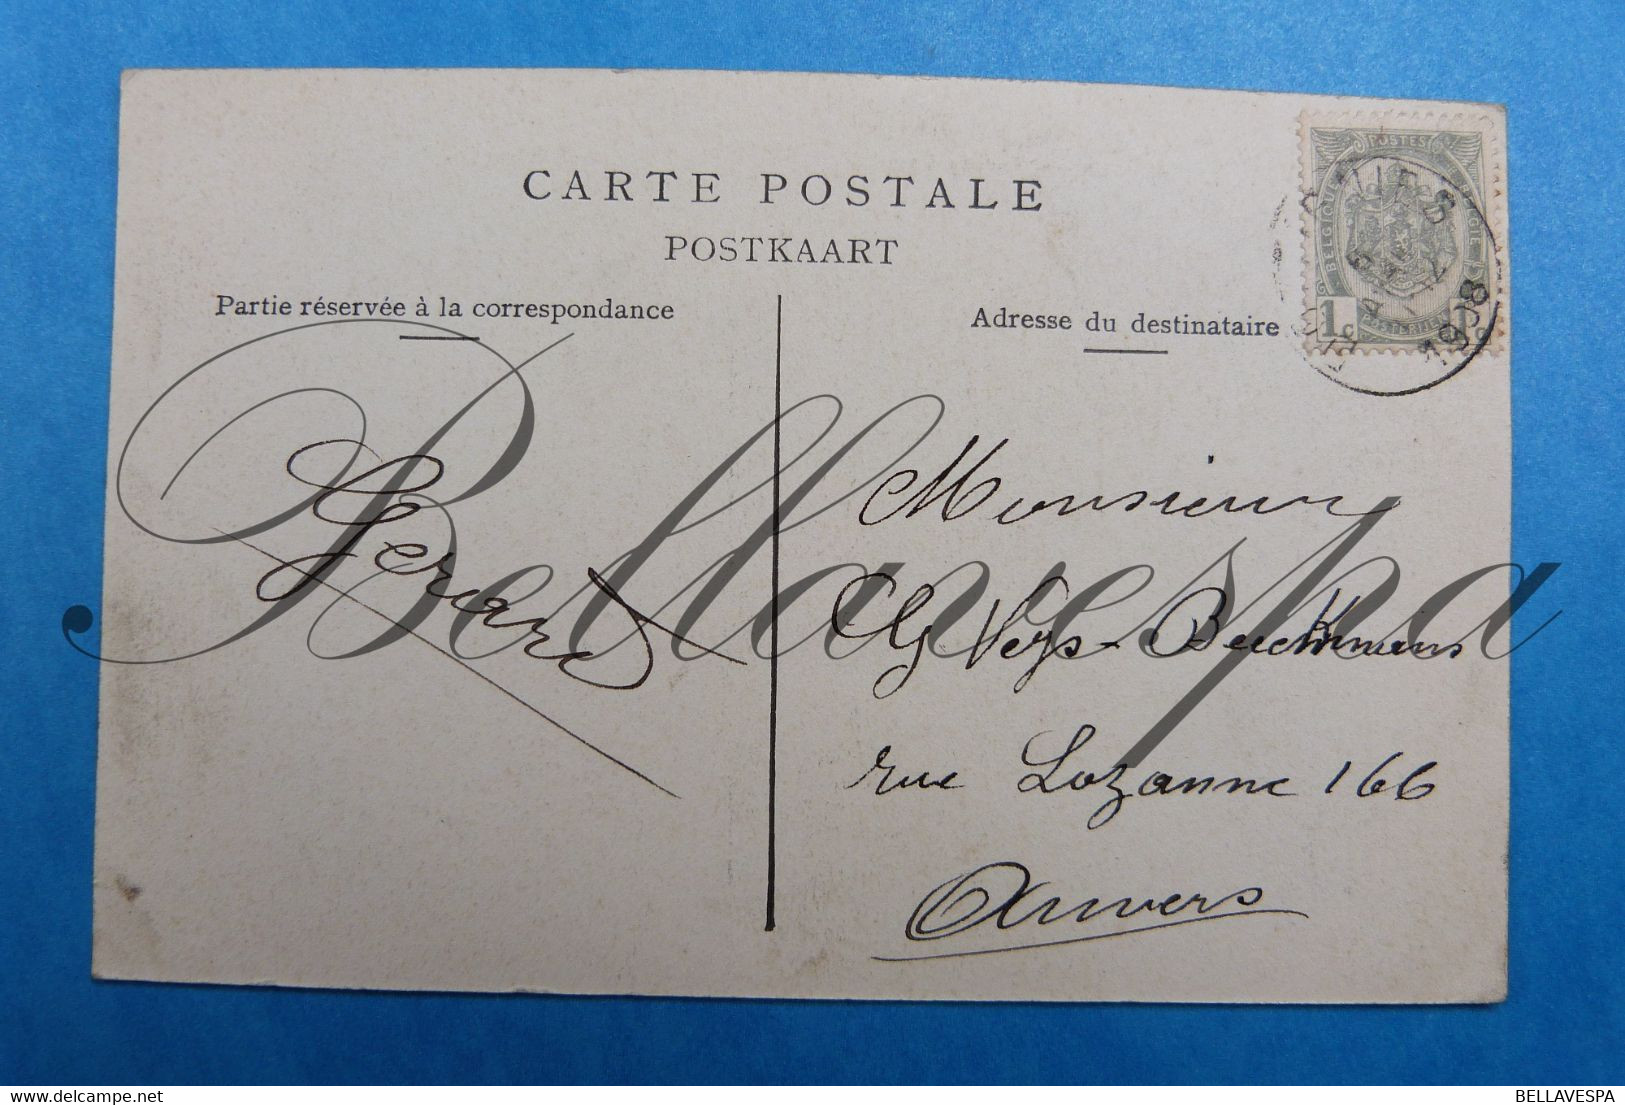 CARTE POSTALE
POSTKAART
Partie réservée à la correspondance
Adresse du destinataire
POSTES
BELGIQUE
BELGIE
1c
POSTERIJEN
1908
Gerard
Monsieur
G Veys-Beeckmans
rue Lozanne 166
Anvers
Bellavespa
BELLAVESPA